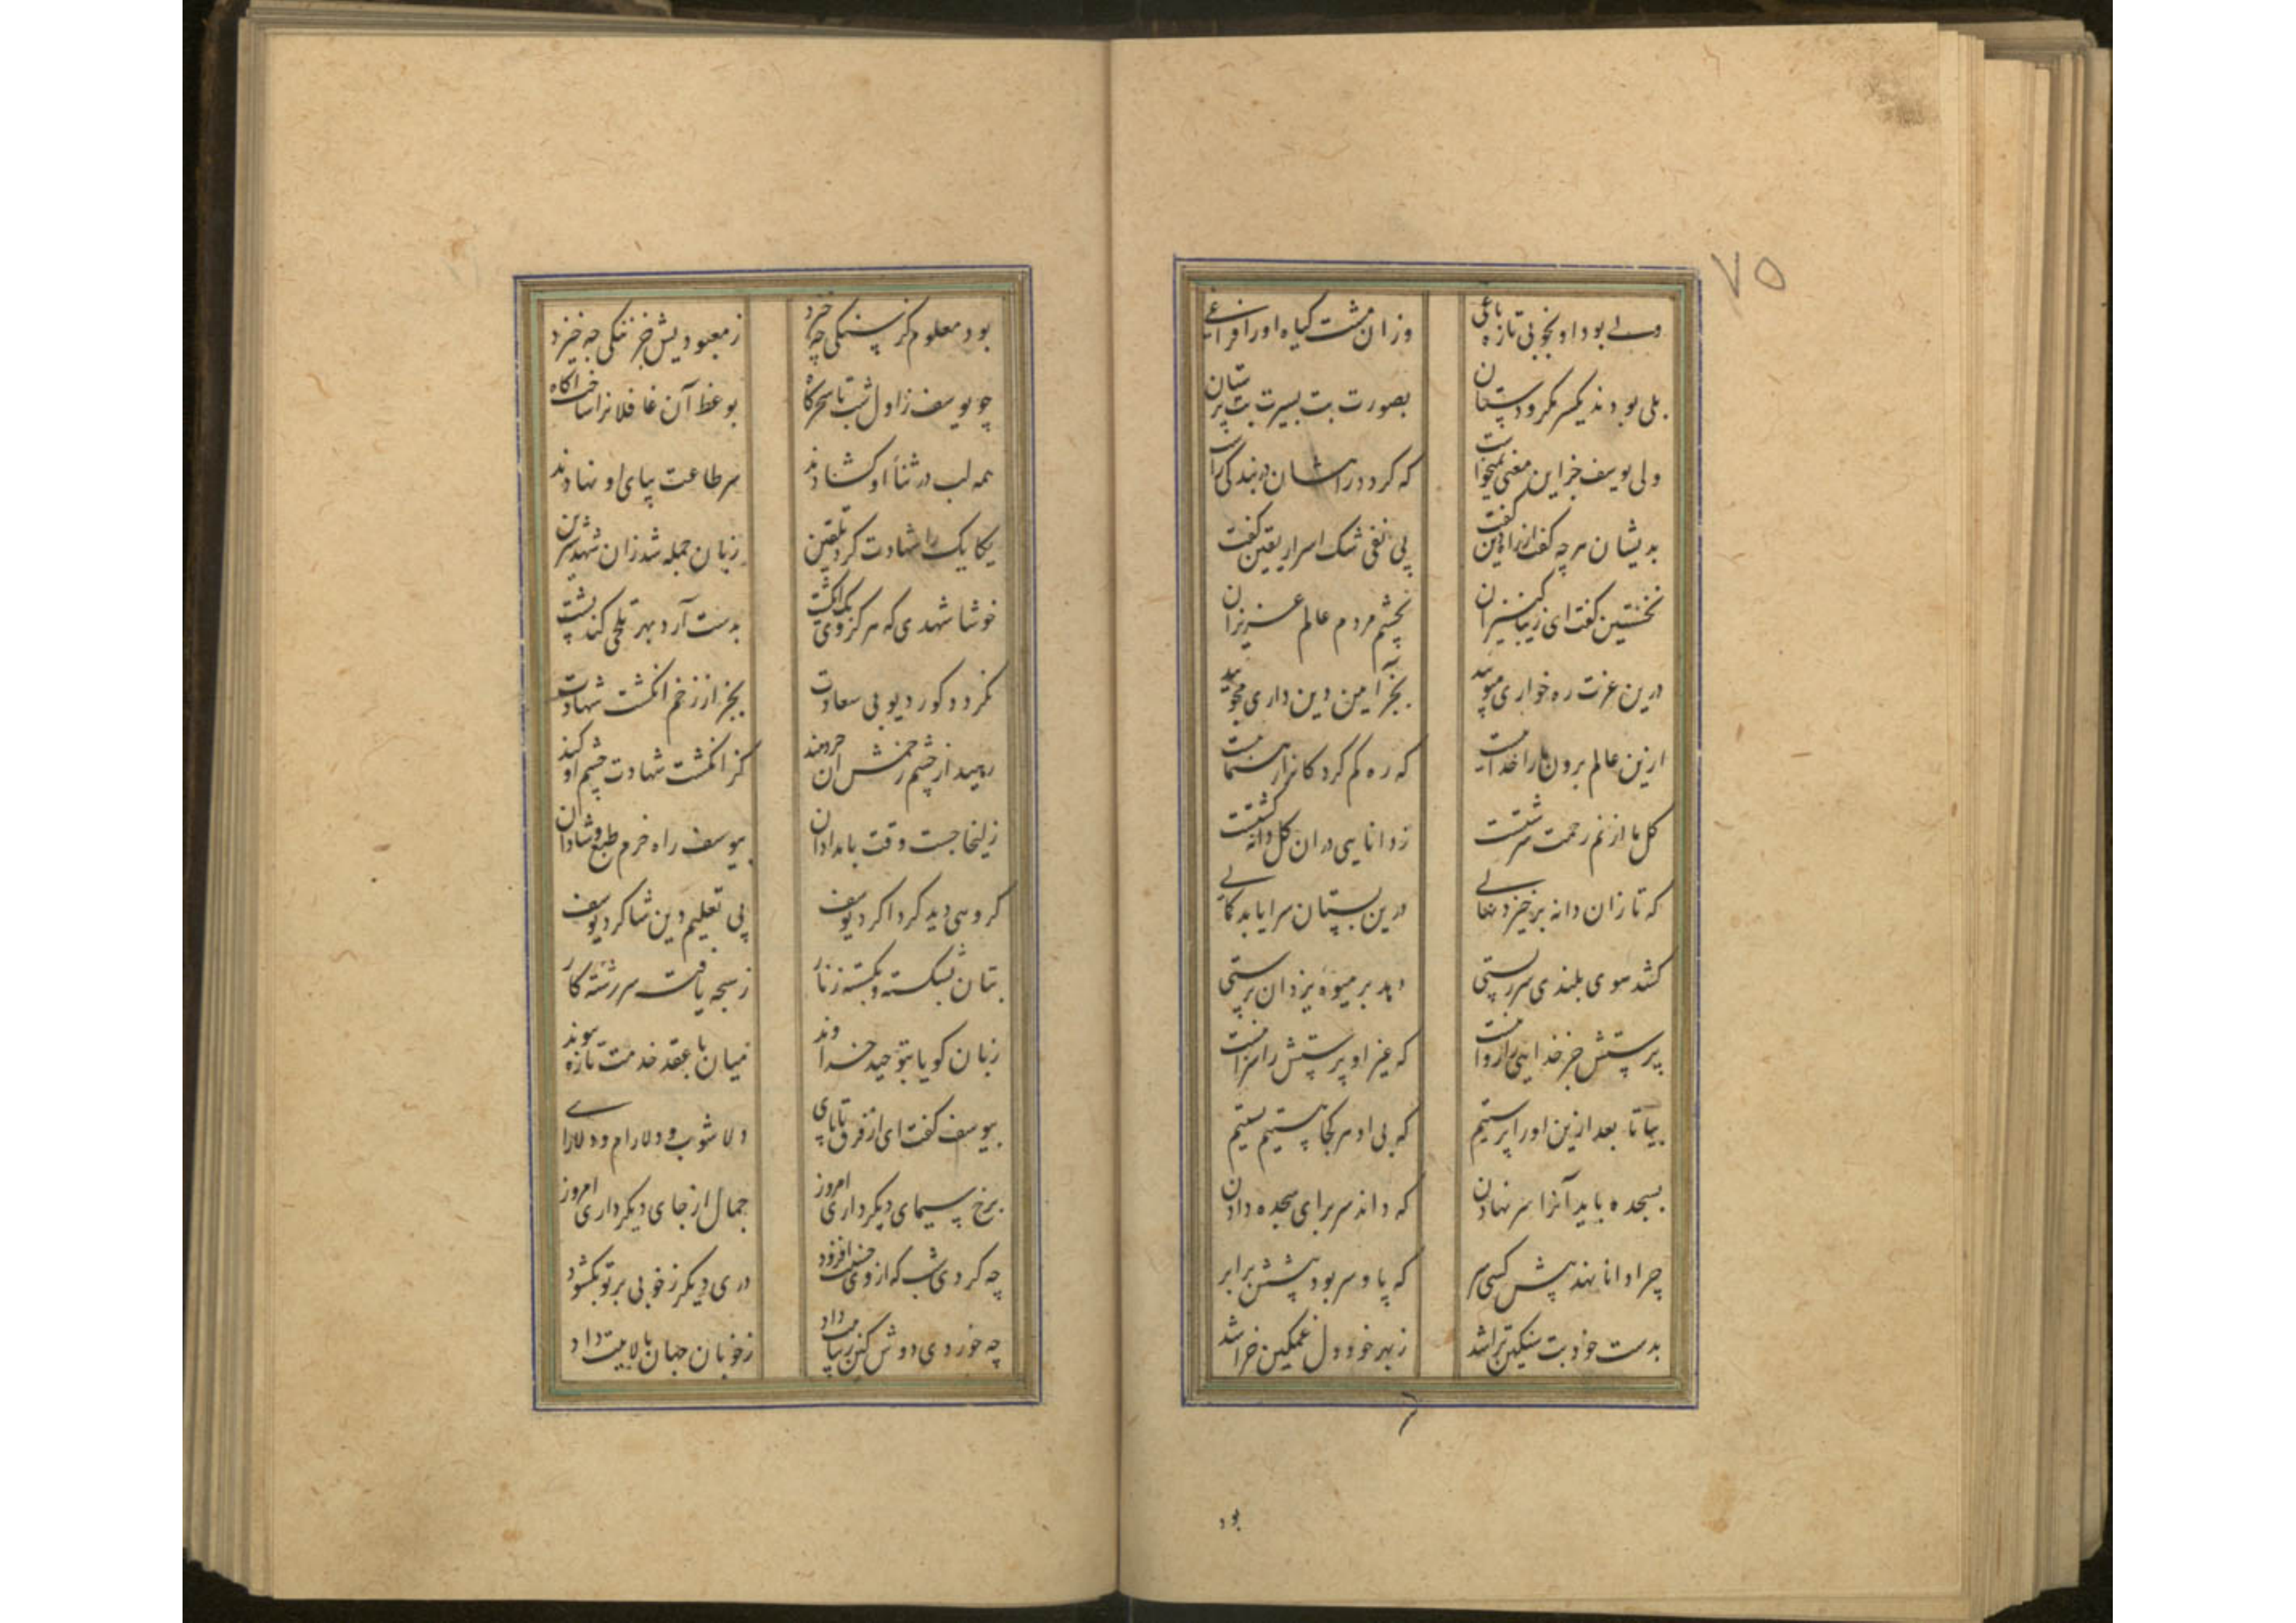 ۷۵
ولے بود او بخوبی تازه باغی
وزان مشت کیاه او را فراغے
بلی بودند یکسر مکر و دستان
بصورت بت بسیرت بت پرستان
ولی یوسف جز این معنی نمیخواست
که کردد راهشان در بندکی راست
بدیشان هرچه کفت از راه دین کفت
پی نفی شک اسرار یقین کفت
نخستین کفت ای زیبا کنیزان
بچشم مردم عالم عزیزان
درین عزت ره خواری مپویید
بجز آیین دین داری مجویید
ازین عالم برون ما را خداییست
که ره کم کرد کانرا رهنماییست
کل ما از نم رحمت سرشتست
ز دانایی در ان کل دانه کشتست
که تا زان دانه برخیزد نهالے
درین بستان سرا یابد کمالے
کشد سوی بلندی سر ز پستی
دهد بر میوه یزدان پرستی
پرستش جز خدایی را روا نیست
که غیر او پرستش را سزا نیست
بیا تا بعد ازین او را پرستیم
که بی او هر کجا هستیم پستیم
بسجده باید آنرا سر نهادن
که داند سر برای سجده دادن
چرا دانا نهد پیش کسی سر
که پا و سر بود پیشش برابر
بدست خود بت سنکین تراشد
ز بهر خود دل غمکین خراشد
بود
بود معلوم کز سنکی چه خیزد
ز معبودیش جز ننکی چه خیزد
چو یوسف ز اول شب تا سحرکاه
بوعظ آن غافلانرا ساخت اکاه
همه لب در ثناء او کشادند
سر طاعت بپای او نهادند
یکایک را شهادت کرد تلقین
زبان جمله شد زان شهد شیرین
خوشا شهدی که هر کز وی یک انکشت
بدست آرد بهر تلخی کند پشت
نکردد کور دیو بی سعادت
بجز از زخم انکشت شهادت
رهید از چشم زخمش ان خردمند
کز انکشت شهادت چشم او کند
زلیخا جست وقت بامدادان
بیوسف راه خرم طبع و شادان
کروهی دید کرد اکرد یوسف
پی تعلیم دین شاکرد یوسف
بتان بشکسته و بکسسته زنار
ز سبحه یافته سررشته کار
زبان کویا بتوحید خداوند
میان با عقد خدمت تازه پیوند
بیوسف کفت ای از فرق تا پای
دلاشوب و دلارام و دلارای
برخ سیمای دیکر داری امروز
جمال از جای دیکر داری امروز
چه کردی شب که از وی حسنت افزود
دری دیکر ز خوبی بر تو بکشود
چه خوردی دوش کین زیباییت داد
ز خوبان جهان بالاییت داد